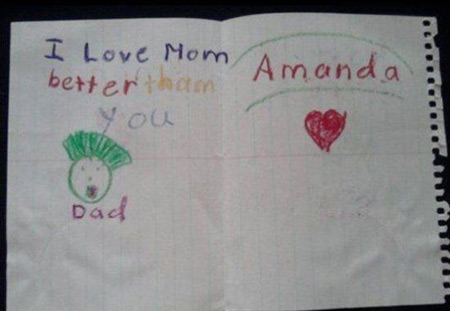 I Love Mom
better than
you
Dad
Amanda